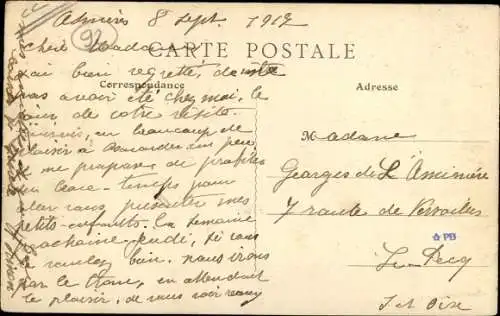 Asnières 8 Sept. 1912
92
CARTE POSTALE
Chère Madame
j'ai bien regretté, de
Correspondance
Adresse
pas avoir été chez moi, le
jour de votre visite.
un beaucoup de
plaisir à un peu
je me propose de profiter
du beau temps pour
aller vous présenter mes
petits-enfants. La semaine
prochaine jeudi, si vous
le voulez bien. nous irons
par le tram, en attendant
le plaisir, de vous voir
Madame
Georges de L'
7 route de Versailles
PB
Le Pecq
S et Oise